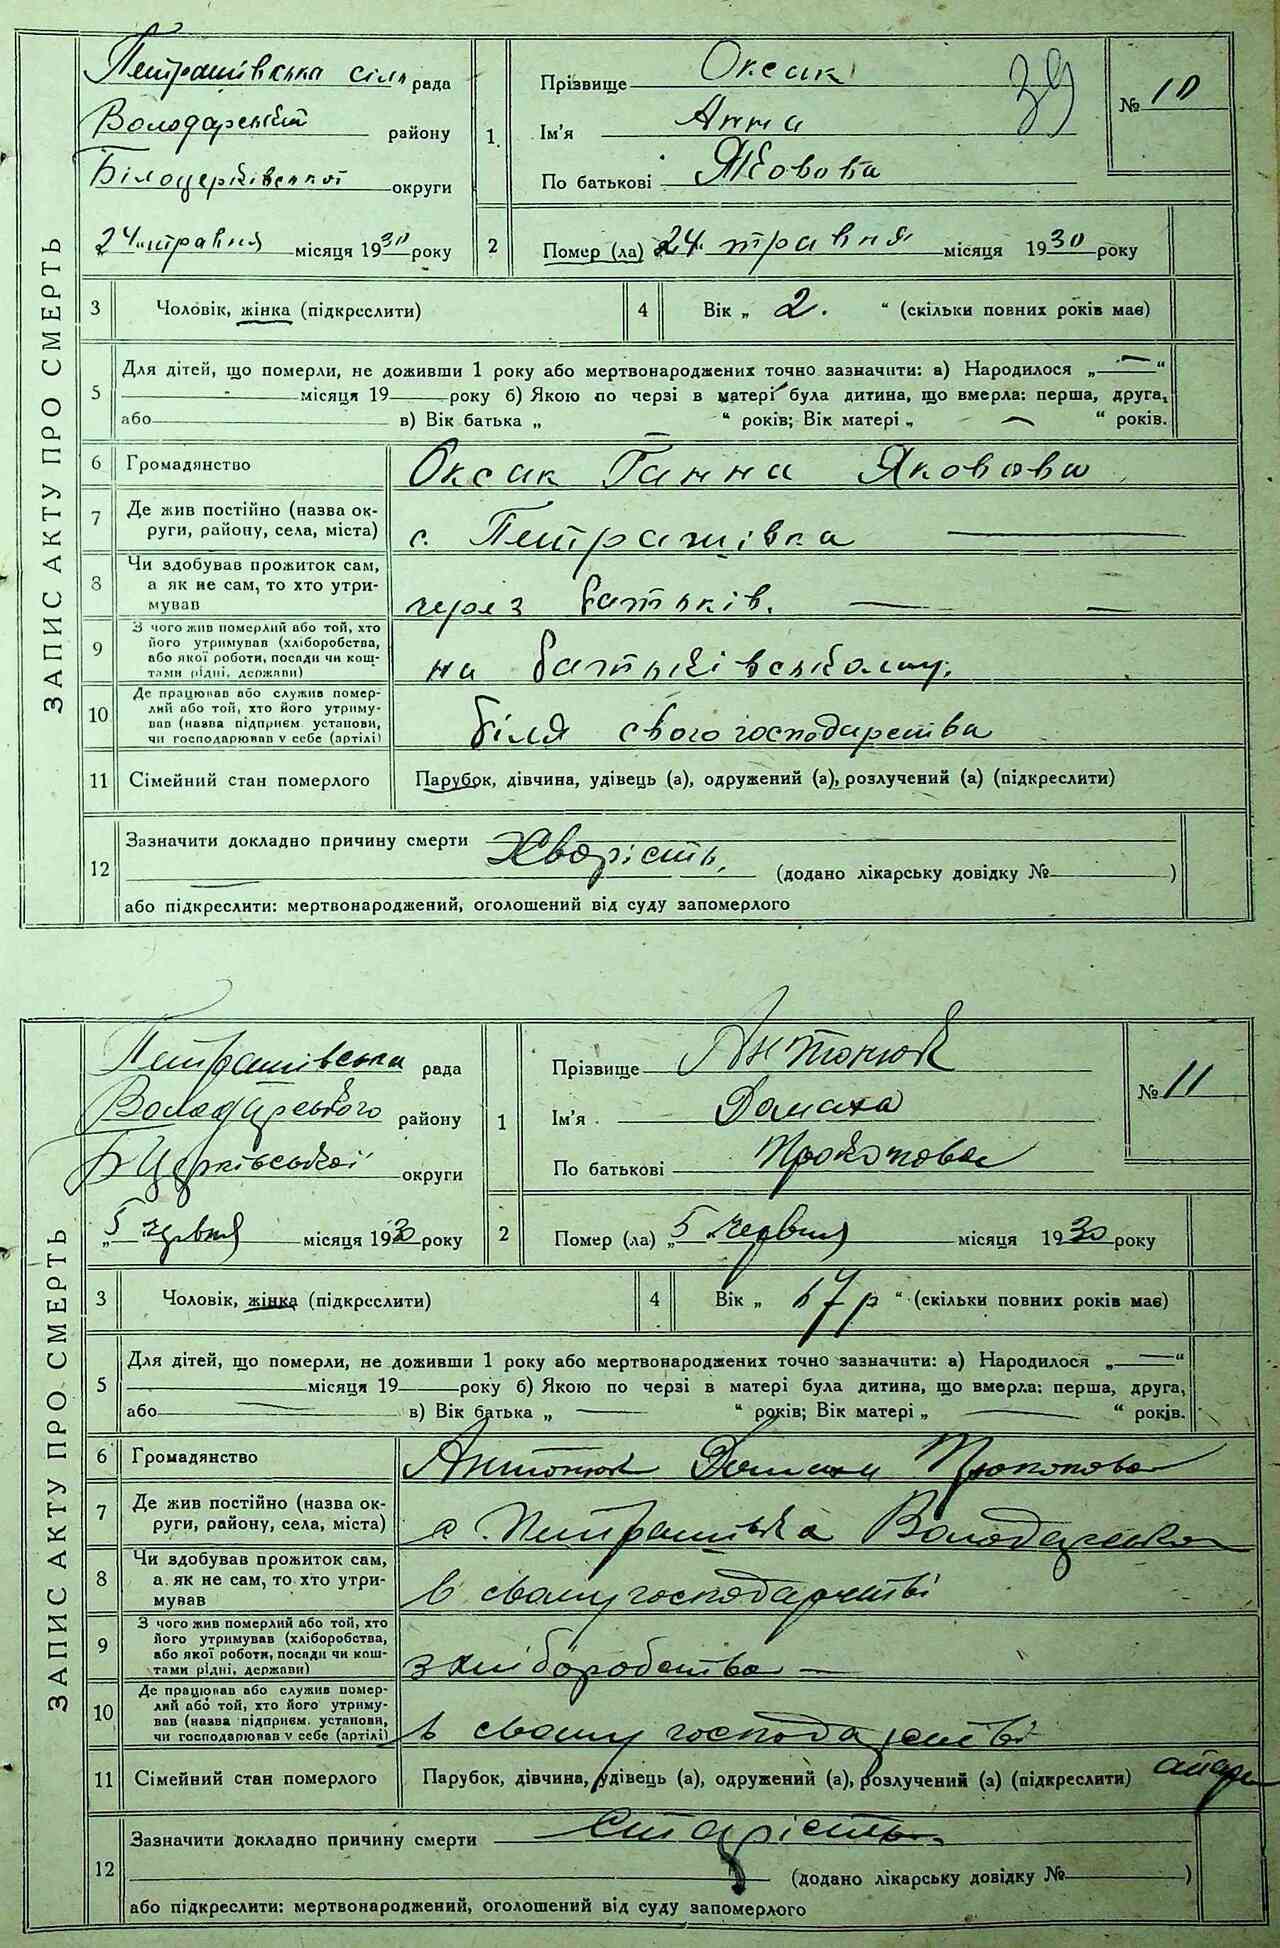 ЗАПИС АКТУ ПРО СМЕРТЬ
Петрашівська сіль рада
Володарський району
Білоцерківської округи
24 травня місяця 1930 року
1. Прізвище Оксак
39
Ім'я Анна
По батькові Яковова
№ 10
2 Помер (ла) 24 травня місяця 1930 року
3 Чоловік, жінка (підкреслити)
4 Вік „ 2. “ (скільки повних років має)
5 Для дітей, що померли, не доживши 1 року або мертвонароджених точно зазначити: а) Народилося „ — “
місяця 19 року б) Якою по черзі в матері була дитина, що вмерла: перша, друга,
або в) Вік батька „ “ років; Вік матері „ — “ років.
6 Громадянство Оксак Ганна Яковова
7 Де жив постійно (назва ок-
руги, району, села, міста) с. Петрашівка —
8 Чи здобував прожиток сам,
а як не сам, то хто утри-
мував через батьків. — —
9 З чого жив померлий або той, хто
його утримував (хліборобства,
або якої роботи, посади чи кош-
тами рідні, держави) на батьківському.
10 Де працював або служив помер-
лий або той, хто його утриму-
вав (назва підприєм. установи,
чи господарював у себе (артілі) біля свого господарства
11 Сімейний стан померлого Парубок, дівчина, удівець (а), одружений (а), розлучений (а) (підкреслити)
12 Зазначити докладно причину смерти Хворість.
(додано лікарську довідку № )
або підкреслити: мертвонароджений, оголошений від суду запомерлого
ЗАПИС АКТУ ПРО СМЕРТЬ
Петрашівська рада
Володарського району
Б Церківської округи
„5 червня місяця 1930 року
1 Прізвище Антонюк
Ім'я Домаха
По батькові Прокопова
№ 11
2 Помер (ла) „5 червня місяця 1930 року
3 Чоловік, жінка (підкреслити)
4 Вік „ 67 р “ (скільки повних років має)
5 Для дітей, що померли, не доживши 1 року або мертвонароджених точно зазначити: а) Народилося „ — “
місяця 19 року б) Якою по черзі в матері була дитина, що вмерла: перша, друга,
або в) Вік батька „ — “ років; Вік матері „ — “ років.
6 Громадянство Антонюк Домахи Прокопова
7 Де жив постійно (назва ок-
руги, району, села, міста) с. Петрашівка
8 Чи здобував прожиток сам,
а як не сам, то хто утри-
мував в свому господарстві
9 З чого жив померлий або той, хто
його утримував (хліборобства,
або якої роботи, посади чи кош-
тами рідні, держави) з хліборобства —
10 Де працював або служив помер-
лий або той, хто його утриму-
вав (назва підприєм. установи,
чи господарював у себе (артілі) в свому господарстві
11 Сімейний стан померлого Парубок, дівчина, удівець (а), одружений (а), розлучений (а) (підкреслити)
12 Зазначити докладно причину смерти Старість.
(додано лікарську довідку № )
або підкреслити: мертвонароджений, оголошений від суду запомерлого